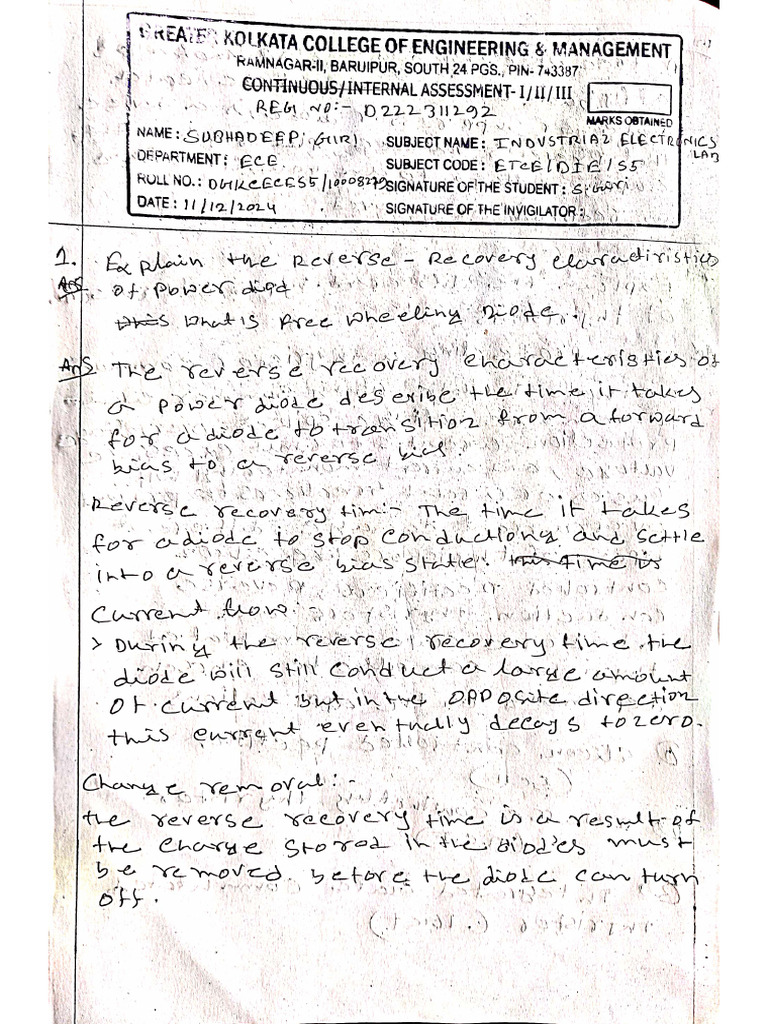 GREATER KOLKATA COLLEGE OF ENGINEERING & MANAGEMENT
RAMNAGAR-II, BARUIPUR, SOUTH 24 PGS., PIN- 743387
CONTINUOUS/INTERNAL ASSESSMENT- I/II/III
REG NO:- D222311292
MARKS OBTAINED
NAME: SUBHADEEP GIRI SUBJECT NAME: INDUSTRIAL ELECTRONICS LAB
DEPARTMENT: ECE SUBJECT CODE: ETCE/DIE/S5
ROLL NO.: SIGNATURE OF THE STUDENT: S. Giri
DATE: 11/12/2024 SIGNATURE OF THE INVIGILATOR:
1. Explain the Reverse - Recovery
Ans. of power diod
what is free wheeling Diode.
Ans The reverse recovery characteristics of
a power diode describe the time it takes
for a diode to transition from a forward
bias to a reverse bias.
Reverse recovery tim:- The time it takes
for a diode to stop conductiong and settle
into a reverse bias state. this time is
Current flow:-
> During the reverse recovery time the
diode will still conduct a large amount
of current but in the opposite direction
this current eventually decays to zero.
Charge removal:-
the reverse recovery time is a result of
the charge stored in the diodes must
be removed before the diode can turn
off.